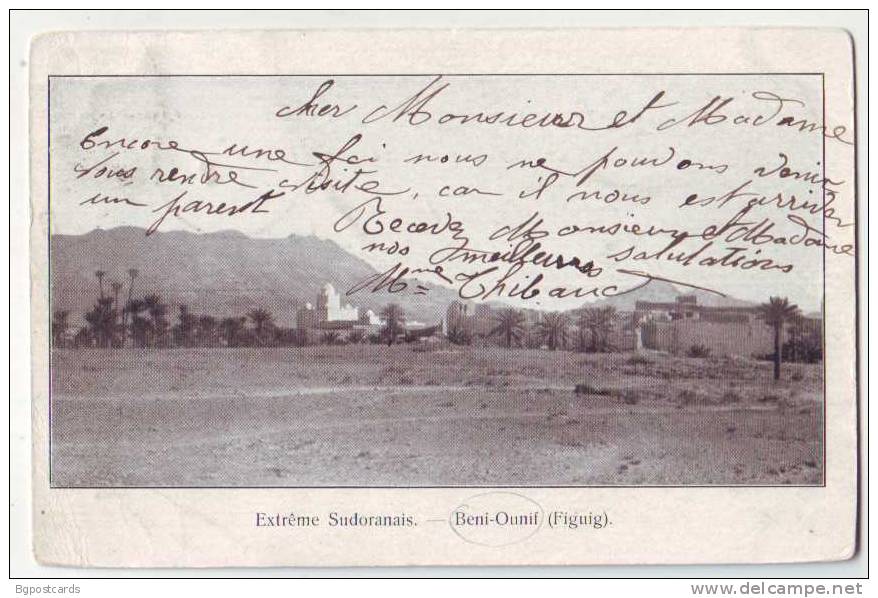 Cher Monsieur et Madame
Encore une foi nous ne pouvons venir
vous rendre visite, car il nous est arriver
un parent Recevez Monsieur et Madame
nos meilleures salutations
Mme Thibauc
Extrême Sudoranais. — Beni-Ounif (Figuig).
Bgpostcards
www.delcampe.net